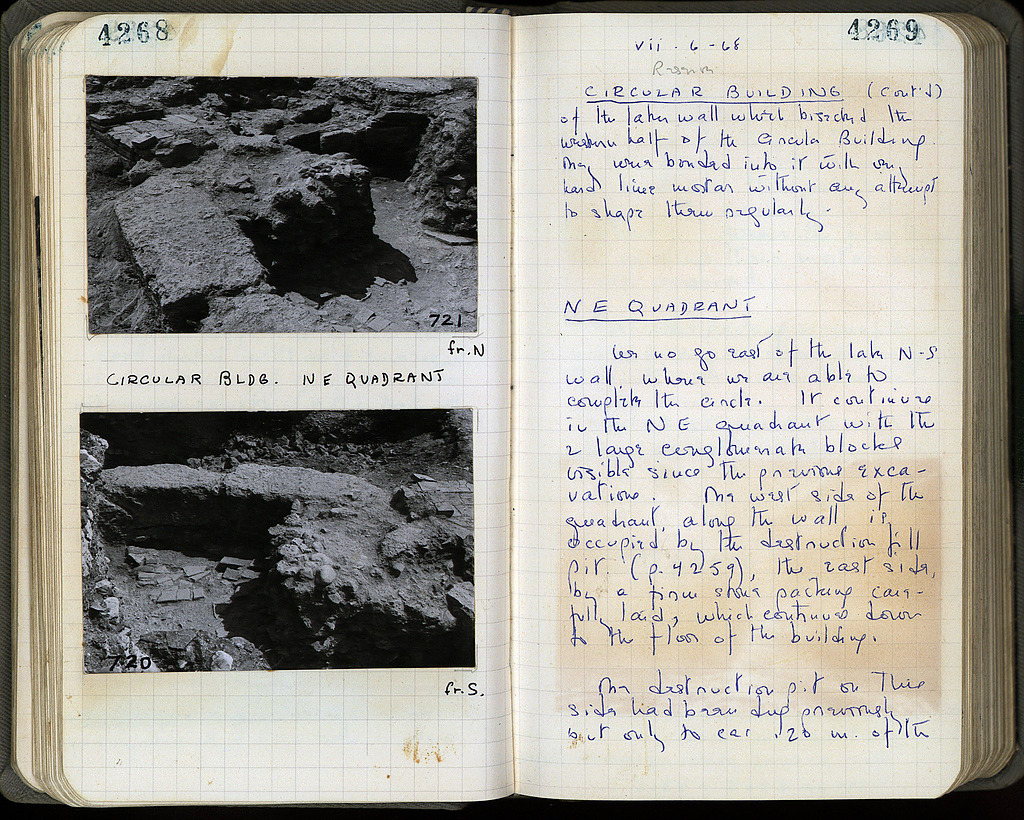 4268
721
fr. N
CIRCULAR BLDG. NE QUADRANT
720
fr. S.
4269
vii - 6 - 68
CIRCULAR BUILDING (Cont'd)
of the later wall which bisected the
western half of the Circular Building.
They were bonded into it with very
hard lime mortar without any attempt
to shape them regularly.
NE QUADRANT
We no go east of the late N-S
wall, where we are able to
complete the circle. It continues
in the NE quadrant with the
2 large conglomerate blocks
visible since the previous exca-
vations. The west side of the
quadrant, along the wall, is
occupied by the destruction fill
pit (p. 4259), the east side,
by a firm stone packing care-
fully laid, which continues down
to the floor of the building.
The destruction pit on this
side had been dug previously
but only to ca. .20 m. of the